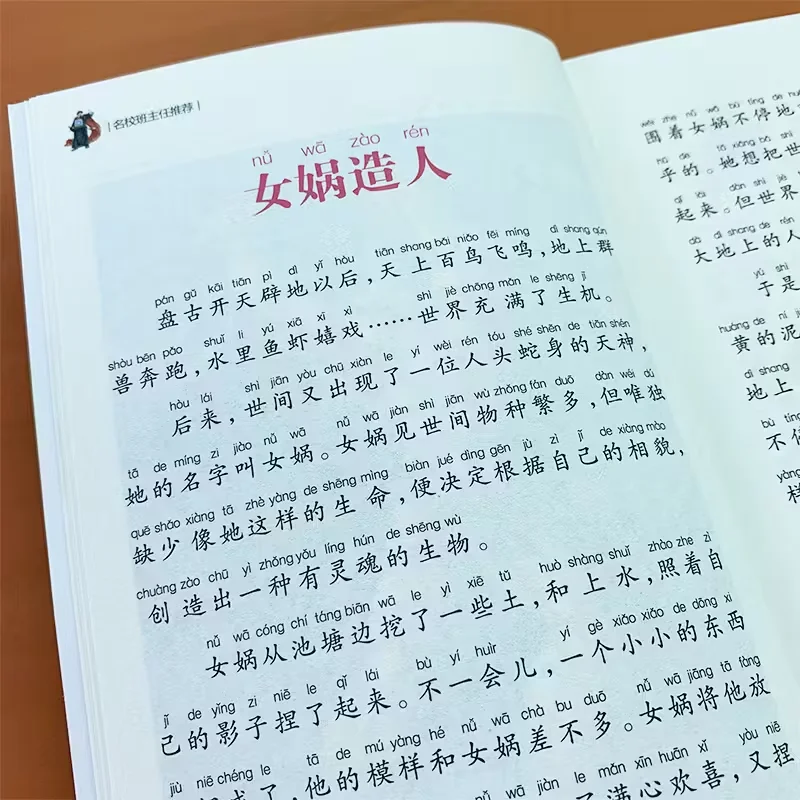 名校班主任推荐
nǚ wā zào rén
女娲造人
pán gǔ kāi tiān pì dì yǐ hòu tiān shang bǎi niǎo fēi míng dì shang qún
盘古开天辟地以后，天上百鸟飞鸣，地上群
shòu bēn pǎo shuǐ li yú xiā xī xì shì jiè chōng mǎn le shēng jī
兽奔跑，水里鱼虾嬉戏……世界充满了生机。
hòu lái shì jiān yòu chū xiàn le yí wèi rén tóu shé shēn de tiān shén
后来，世间又出现了一位人头蛇身的天神，
tā de míng zi jiào nǚ wā nǚ wā jiàn shì jiān wù zhǒng fán duō dàn wéi dú
她的名字叫女娲。女娲见世间物种繁多，但唯独
quē shǎo xiàng tā zhè yàng de shēng mìng biàn jué dìng gēn jù zì jǐ de xiàng mào
缺少像她这样的生命，便决定根据自己的相貌，
chuàng zào chū yì zhǒng yǒu líng hún de shēng wù
创造出一种有灵魂的生物。
nǚ wā cóng chí táng biān wā le yì xiē tǔ huò shàng shuǐ zhào zhe zì
女娲从池塘边挖了一些土，和上水，照着自
jǐ de yǐng zi niē le qǐ lái bù yí huìr yí gè xiǎo xiǎo de dōng xi
己的影子捏了起来。不一会儿，一个小小的东西
jiù niē chéng le tā de mú yàng hé nǚ wā chà bu duō nǚ wā jiāng tā fàng
捏成了，他的模样和女娲差不多。女娲将他放
nǚ wā jiàn le mǎn xīn huān xǐ yòu niē
了满心欢喜，又捏
wéi zhe nǚ wā bù tíng de
围着女娲不停地
hū de tā xiǎng bǎ
乎的。她想把世
qǐ lái dàn shì jiè
起来。但世界
dà dì shang de rén
大地上的人
yú shì
于是
huáng de ní
黄的泥
地上
bù tíng
不停
yàng
样